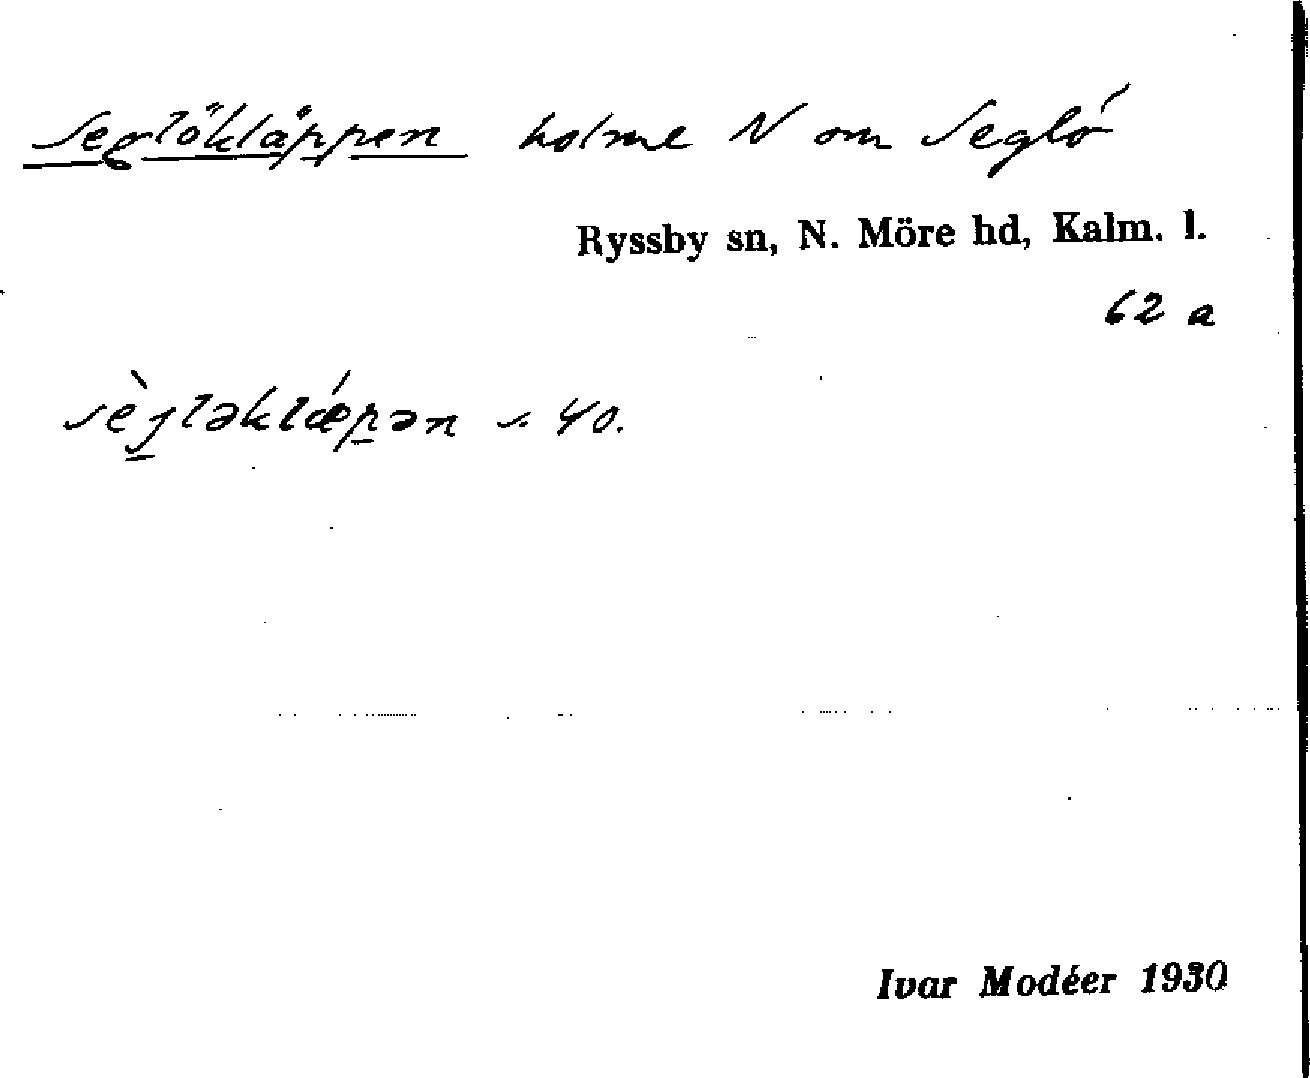 Seglökläppen holme N om Seglö
Ryssby sn, N. Möre hd, Kalm. l.
62 a
sèɡləklǽpən s. 40.
Ivar Modéer 1930